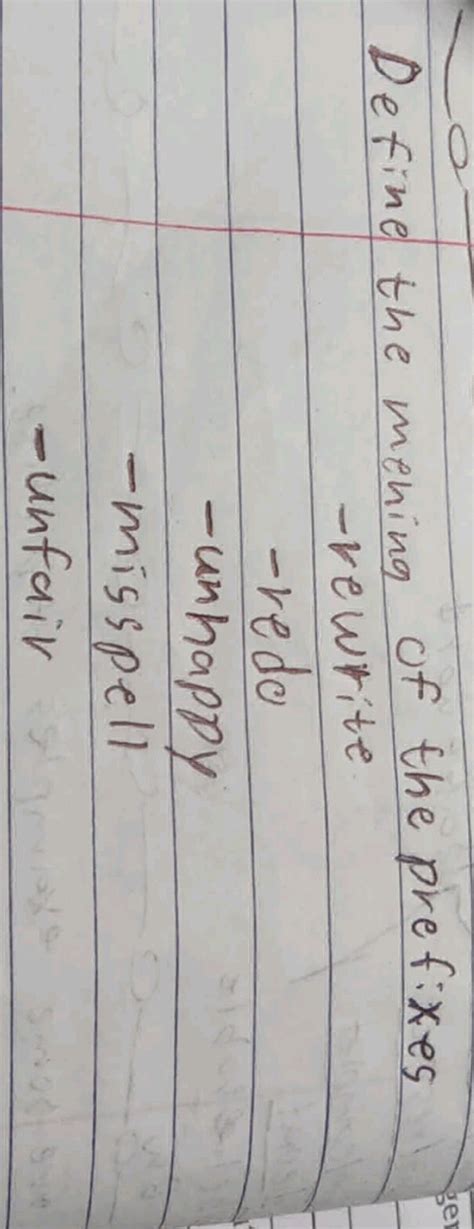 Define the mening of the prefixes
-rewrite
-redo
-unhappy
-misspell
-unfair